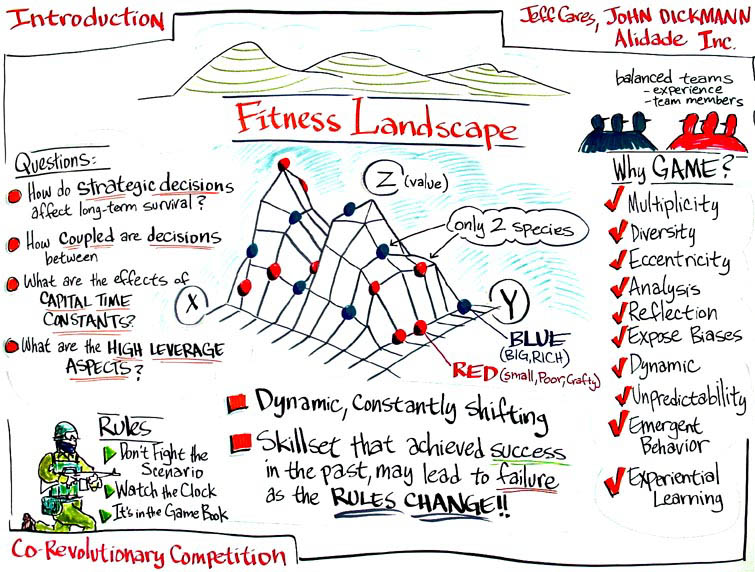 Introduction
Jeff Cares, JOHN DICKMANN
Alidade Inc.
balanced teams
- experience
- team members
Fitness Landscape
Questions:
How do strategic decisions
affect long-term survival?
How coupled are decisions
between
What are the effects of
CAPITAL TIME
CONSTANTS?
What are the HIGH LEVERAGE
ASPECTS?
Z (value)
only 2 species
X
Y
BLUE
(BIG, RICH)
RED (small, Poor, Crafty)
Why GAME?
Multiplicity
Diversity
Eccentricity
Analysis
Reflection
Expose Biases
Dynamic
Unpredictability
Emergent
Behavior
Experiential
Learning
Dynamic, Constantly Shifting
Skillset that achieved success
in the past, may lead to failure
as the RULES CHANGE!!
Rules
Don't Fight the
Scenario
Watch the Clock
It's in the Game Book
Co-Revolutionary Competition